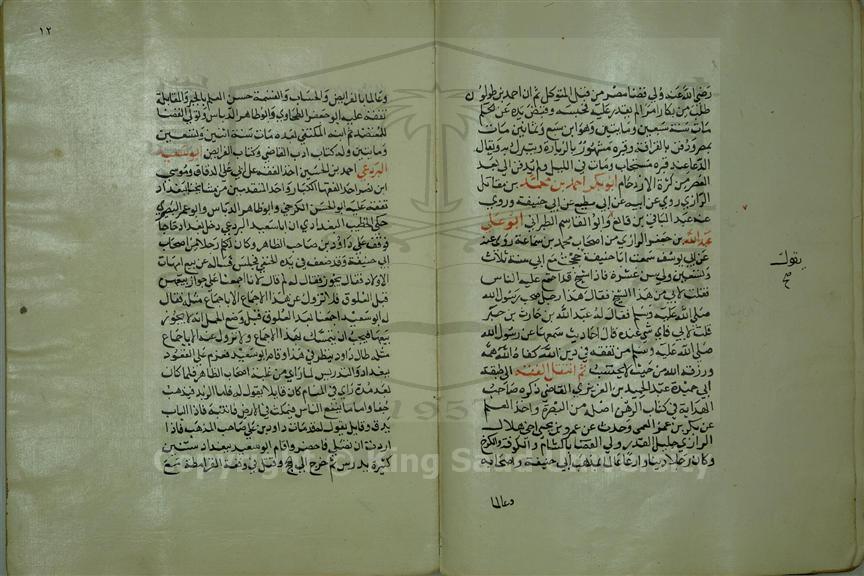 رضي الله عنه ولي قضا مصر من قبل المتوكل ثم ان احمد بن طولون
طلب من بكار امر الم يقدر عليه فحبسه وقبض يده عن الحكم
مات سنة سبعين ومايتين وهو ابن سبع وثمانين مات
بمصر ودفن بالقرافة وقبره مشهور بالزيارة ويتبرك به ويقال
الدعا عند قبره مستجاب ومات في الليل ولم يدفن الى بعد
العصر من كثرة الازدحام ابو بكر احمد بن محمد بن مقاتل
الرازي روي عن ابيه عن ابي مطيع عن ابي حنيفة وروي
عنه عبد الباقي بن قانع وابو القاسم الطبراني ابو علي
عبد الله بن جعفر الرازي من اصحاب محمد بن سماعة روى عنه
عن ابي يوسف سمعت ابا حنيفة حججت مع ابي سنة ثلاث
وتسعين ولي ست عشرة فاذا شيخ قد اجتمع عليه الناس
فقلت لابي من هذا الشيخ فقال هذا رجل صحب رسول الله
صلى الله عليه وسلم يقال له عبد الله بن حارث بن جزء
قلت لابي فاي شي عنده قال احاديث سمعها عن رسول الله
صلى الله عليه وسلم من تفقه في دين الله كفاه الله همه
ورزقه الله من حيث لا يحتسب ثم انتقل الفقه الى طبقة
ابي حميدة عبد الحميد بن العزيز بن القاضي ذكره صاحب
الهداية في كتاب الرهن اصله من البصرة واخذ العلم
عن بكر بن عمر العمى وحدث عن عمرو بن يحيى اخى هلال
الرازي جليل القدر ولي القضا بالشام والكوفة والكرخ
وكان رجلا دينا ورعا عالما بمذهب ابي حنيفة واصحابه
وعالما
يقول
صح
١٢
وعالما بالفرايض والحساب والقسمة حسن العلم بالجبر والمقابلة
تفقه عليه ابو جعفر الطحاوي وابو طاهر الدباس وتولى القضا
للمعتضد ثم ابنه المكتفي بعده مات سنة اثنين وتسعين
ومايتين وله كتاب ادب القاضي وكتاب الفرايض ابو سعيد
البردعي احمد بن الحسين اخذ الفقه عن ابي علي الدقاق وموسى
ابن نصر احد الفقها الكبار واحد المتقدمين من مشايخنا ببغداد
تفقه عليه ابو الحسن الكرخي وابو طاهر الدباس وابو عمر الطبري
حكى الخطيب البغدادي ان ابا سعيد البردعي دخل بغداد حاجا
فوقف على داود بن صاحب الظاهر وكان يكلم رجلا من اصحاب
ابي حنيفة وقد ضعف في يده الحنفي فجلس فساله عن بيع امهات
الاولاد فقال يجوز فقال له لم قال لانا اجمعنا على جواز بيعهن
قبل العلوق فلا نزول عن هذا الاجماع الا باجماع مثله فقال
له ابو سعيد اجمعنا بعد العلوق قبل وضع الحمل انه لا يجوز
بيعها فيجب ان نتمسك بهذا الاجماع ولا نزول عنه الا باجماع
مثله قال داود ينظر في هذا وقام ابو سعيد فعزم على القعود
ببغداد والتدريس لما راي من غلبة اصحاب الظاهر فلما كان
بعد مدة راي في المنام كان قايلا يقول له فاما الزبد فيذهب
جفاء واما ما ينفع الناس فيمكث في الارض فانتبه فاذا الباب
يدق وقايل يقول له قد مات داود بن علي صاحب المذهب فاذا
اردت ان تصلي فاحضر واقام ابو سعيد ببغداد سنين
كثيرة يدرس ثم خرج الى الحج وقتل في وقعة القرامطة مع
Copyright © King Saud University
1957